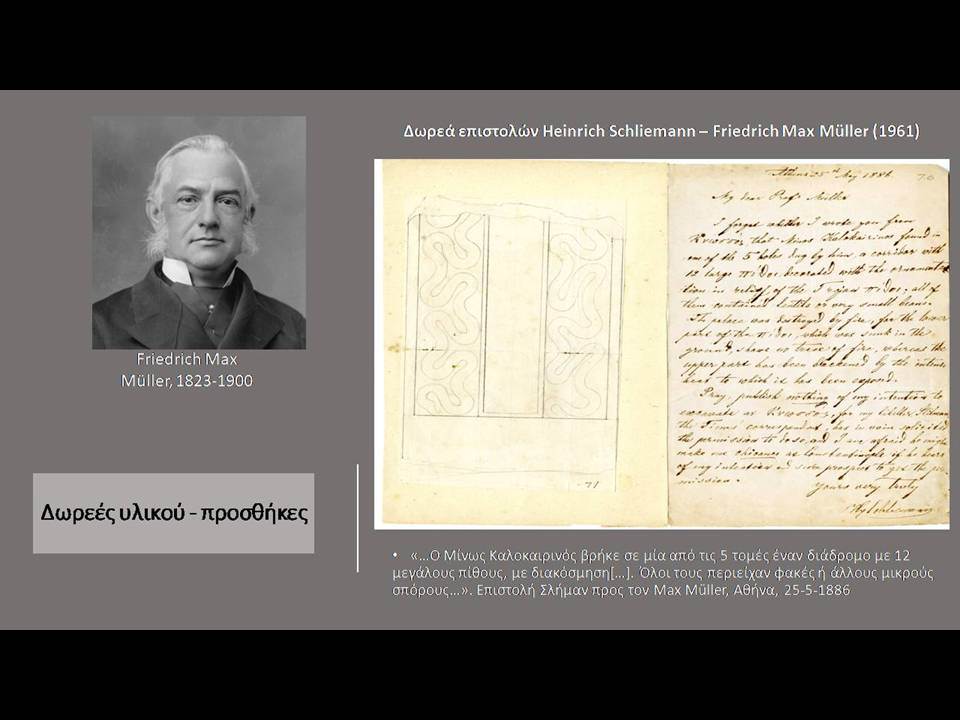 Δωρεά επιστολών Heinrich Schliemann – Friedrich Max Müller (1961)
Friedrich Max
Müller, 1823-1900
Δωρεές υλικού - προσθήκες
Athens 25th May 1886.
My dear Prof. Müller
I forget whether I wrote you from
Κνωσσος that Minos Kalokairinos found in
one of the 5 holes dug by him, a corridor with
12 large πίθοι decorated with the ornamenta-
tion in relief of the Trojan πίθοι; all of
them contained lentils or very small beans.
The palace was destroyed by fire, for the lower
part of the πίθοι, which was sunk in the
ground, shows no trace of fire, whereas the
upper part has been blackened by the intense
heat to which it has been exposed.
Pray, publish nothing of my intention to
excavate at Κνωσσος, for my Stillman,
the Times' correspondent, has in vain solicited
the permission to do so, and I am afraid he might
make me chicanes at Constantinople if he hears
of my intention and sure prospect to get the per-
mission.
Yours very truly
Hy Schliemann
71
• «…Ο Μίνως Καλοκαιρινός βρήκε σε μία από τις 5 τομές έναν διάδρομο με 12
μεγάλους πίθους, με διακόσμηση[…]. Όλοι τους περιείχαν φακές ή άλλους μικρούς
σπόρους…». Επιστολή Σλήμαν προς τον Max Müller, Αθήνα, 25-5-1886